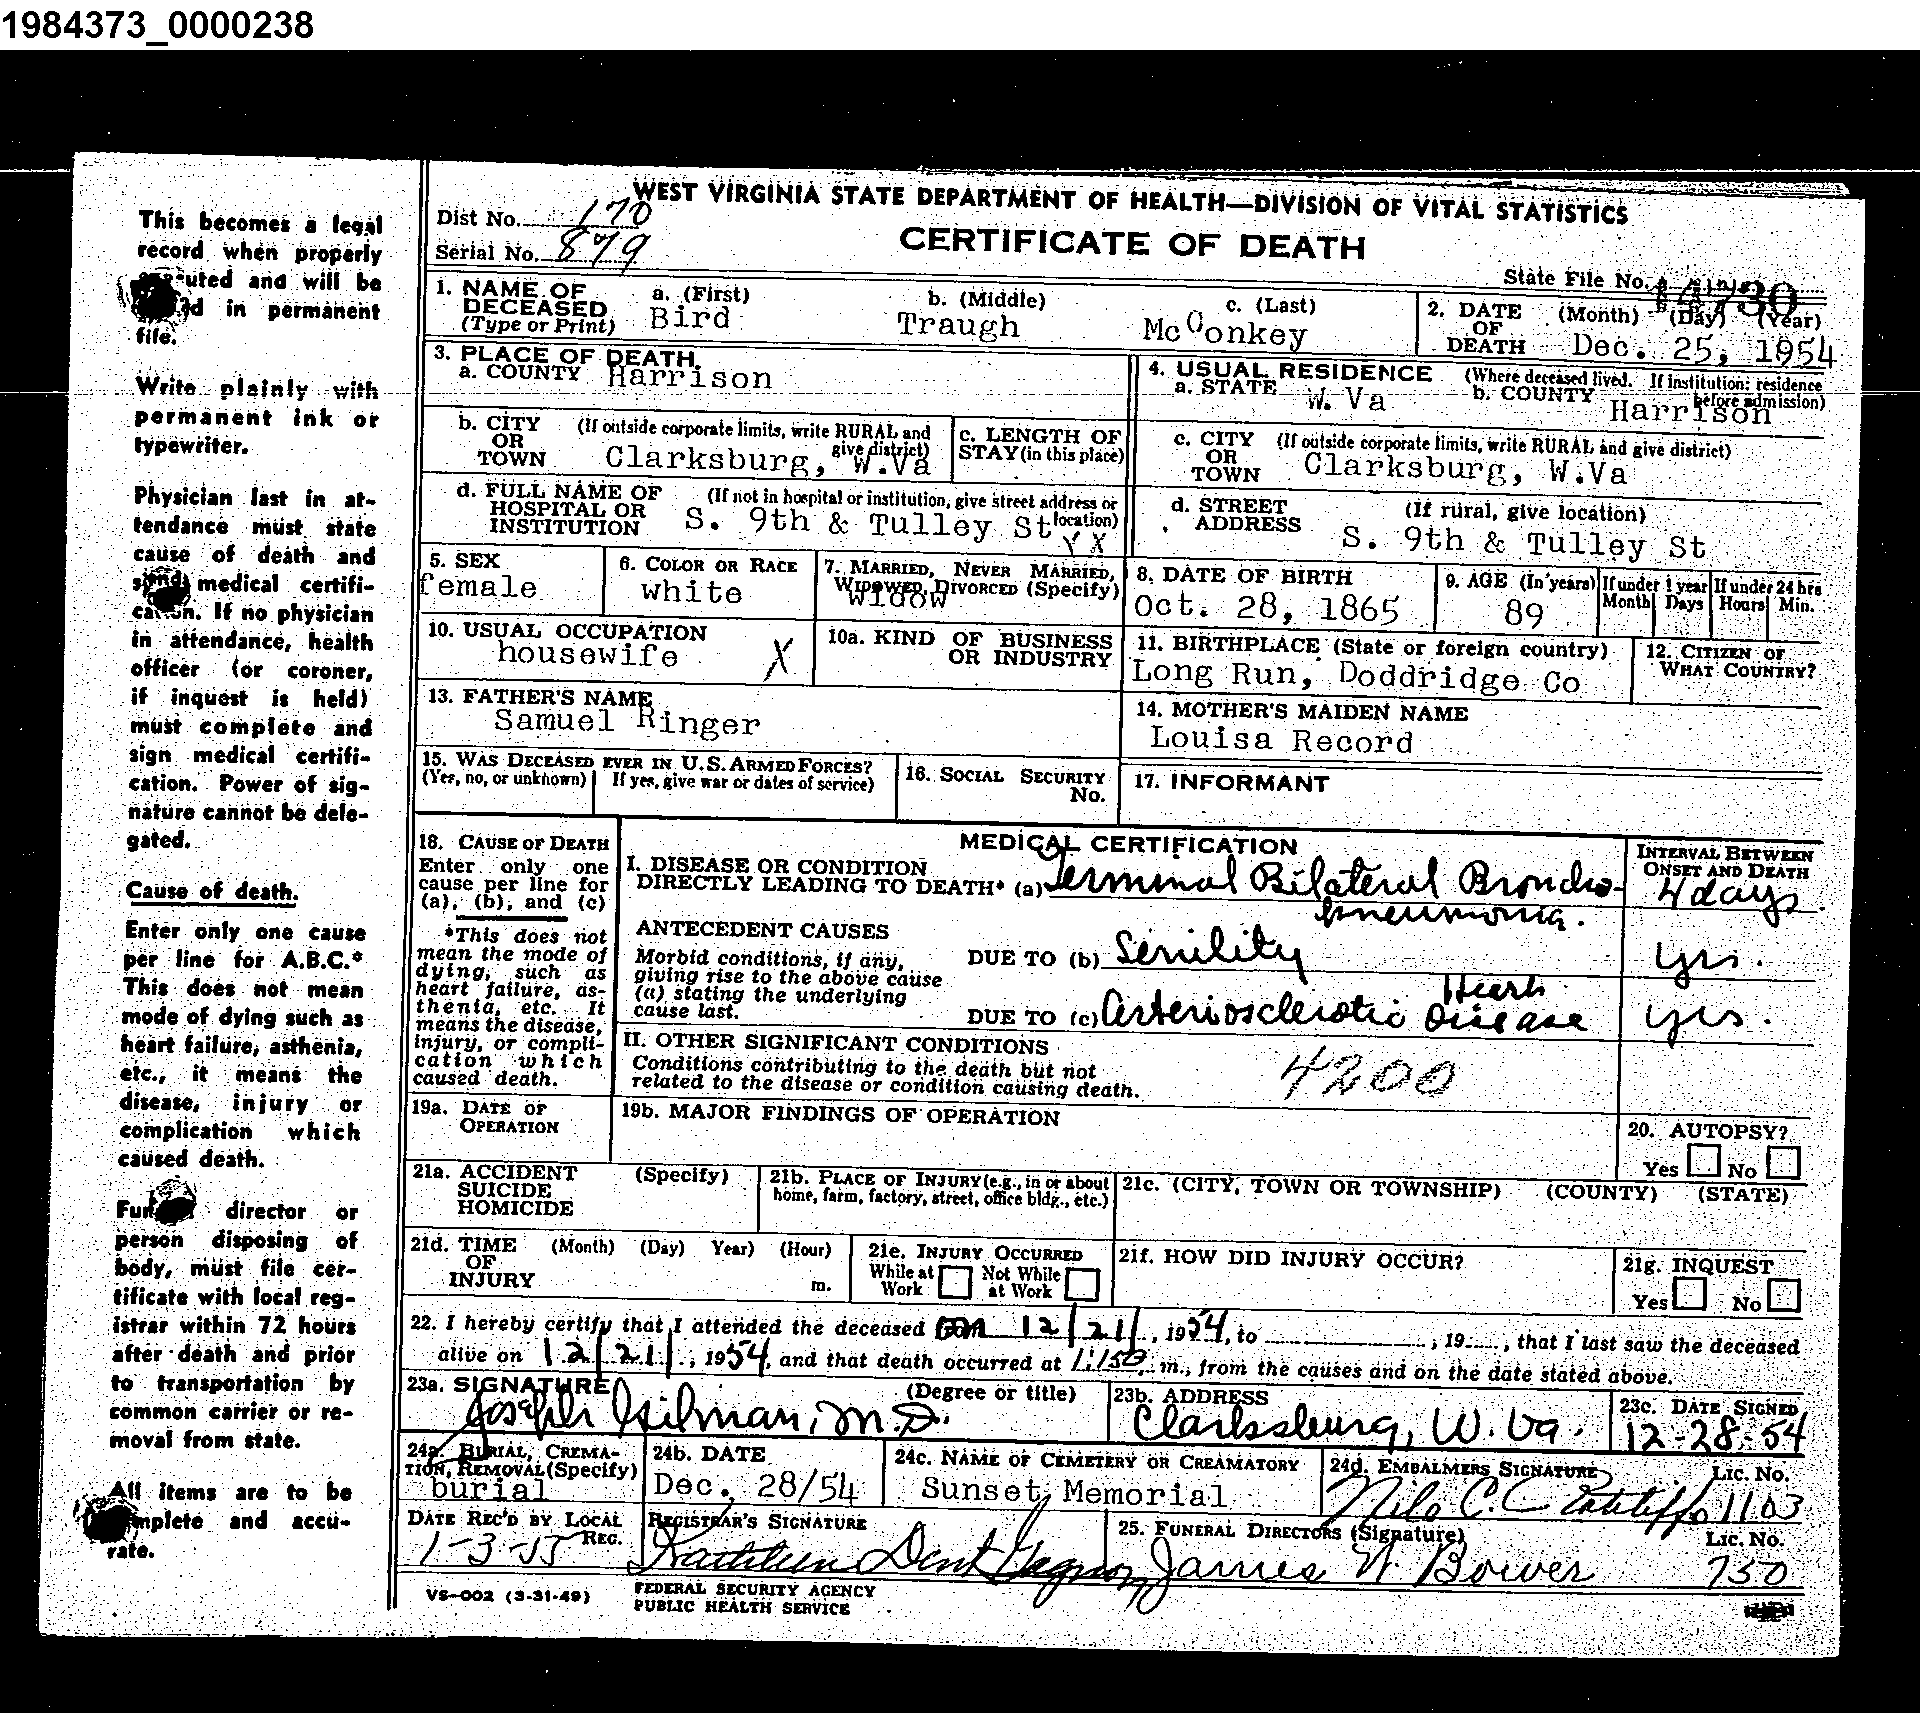 1984373_0000238
This becomes a legal
record when properly
and will be
in permanent
file.
Write plainly with
permanent ink or
typewriter.
Physician last in at-
tendance must state
cause of death and
medical certifi-
cation. If no physician
in attendance, health
officer (or coroner,
if inquest is held)
must complete and
sign medical certifi-
cation. Power of sig-
nature cannot be dele-
gated.
Cause of death.
Enter only one cause
per line for A.B.C.*
This does not mean
mode of dying such as
heart failure, asthenia,
etc., it means the
disease, injury or
complication which
caused death.
director or
person disposing of
body, must file cer-
tificate with local reg-
istrar within 72 hours
after death and prior
to transportation by
common carrier or re-
moval from state.
All items are to be
and accu-
rate.
WEST VIRGINIA STATE DEPARTMENT OF HEALTH—DIVISION OF VITAL STATISTICS
Dist No. 170
Serial No. 879
CERTIFICATE OF DEATH
State File No.
1. NAME OF DECEASED (Type or Print)
a. (First) Bird
b. (Middle) Traugh
c. (Last) McConkey
2. DATE OF DEATH (Month) (Day) (Year) Dec. 25, 1954
3. PLACE OF DEATH.
a. COUNTY Harrison
4. USUAL RESIDENCE (Where deceased lived. If institution: residence before admission)
a. STATE W. Va
b. COUNTY Harrison
b. CITY OR TOWN (If outside corporate limits, write RURAL and give district) Clarksburg, W.Va
c. LENGTH OF STAY (in this place)
c. CITY OR TOWN (If outside corporate limits, write RURAL and give district) Clarksburg, W.Va
d. FULL NAME OF HOSPITAL OR INSTITUTION (If not in hospital or institution, give street address or location) S. 9th & Tulley St
d. STREET ADDRESS (If rural, give location) S. 9th & Tulley St
5. SEX female
6. COLOR OR RACE white
7. MARRIED, NEVER MARRIED, WIDOWED, DIVORCED (Specify) widow
8. DATE OF BIRTH Oct. 28, 1865
9. AGE (In years) 89
If under 1 year Month Days
If under 24 hrs Hours Min.
10. USUAL OCCUPATION housewife X
10a. KIND OF BUSINESS OR INDUSTRY
11. BIRTHPLACE (State or foreign country) Long Run, Doddridge Co
12. CITIZEN OF WHAT COUNTRY?
13. FATHER'S NAME Samuel Ringer
14. MOTHER'S MAIDEN NAME Louisa Record
15. WAS DECEASED EVER IN U.S. ARMED FORCES?
(Yes, no, or unknown) If yes, give war or dates of service)
16. SOCIAL SECURITY No.
17. INFORMANT
18. CAUSE OF DEATH
Enter only one
cause per line for
(a), (b), and (c)
*This does not
mean the mode of
dying, such as
heart failure, as-
thenia, etc. It
means the disease,
injury, or compli-
cation which
caused death.
MEDICAL CERTIFICATION
INTERVAL BETWEEN ONSET AND DEATH
I. DISEASE OR CONDITION
DIRECTLY LEADING TO DEATH* (a) Terminal Bilateral Broncho- 4 days
pneumonia.
ANTECEDENT CAUSES
Morbid conditions, if any,
giving rise to the above cause
(a) stating the underlying
cause last.
DUE TO (b) Senility yrs.
DUE TO (c) Arteriosclerotic Heart Disease yrs.
II. OTHER SIGNIFICANT CONDITIONS
Conditions contributing to the death but not
related to the disease or condition causing death.
4200
19a. DATE OF OPERATION
19b. MAJOR FINDINGS OF OPERATION
20. AUTOPSY?
Yes No
21a. ACCIDENT SUICIDE HOMICIDE (Specify)
21b. PLACE OF INJURY (e.g., in or about
home, farm, factory, street, office bldg., etc.)
21c. (CITY, TOWN OR TOWNSHIP) (COUNTY) (STATE)
21d. TIME OF INJURY (Month) (Day) Year) (Hour) m.
21e. INJURY OCCURRED
While at Work Not While at Work
21f. HOW DID INJURY OCCUR?
21g. INQUEST
Yes No
22. I hereby certify that I attended the deceased on 12/21/, 1954, to , 19 , that I last saw the deceased
alive on 12/21/, 1954, and that death occurred at m., from the causes and on the date stated above.
23a. SIGNATURE (Degree or title) Joseph Gilman, M.D.
23b. ADDRESS Clarksburg, W. Va.
23c. DATE SIGNED 12-28-54
24a. BURIAL, CREMA-
TION, REMOVAL (Specify) burial
24b. DATE Dec. 28/54
24c. NAME OF CEMETERY OR CREAMATORY Sunset Memorial
24d. EMBALMERS SIGNATURE Lic. No. 1103
DATE REC'D BY LOCAL REG. 1-3-55
REGISTRAR'S SIGNATURE Kathleen Dent
25. FUNERAL DIRECTORS (Signature) James W. Bower Lic. No. 750
VS-002 (3-31-49)
FEDERAL SECURITY AGENCY
PUBLIC HEALTH SERVICE